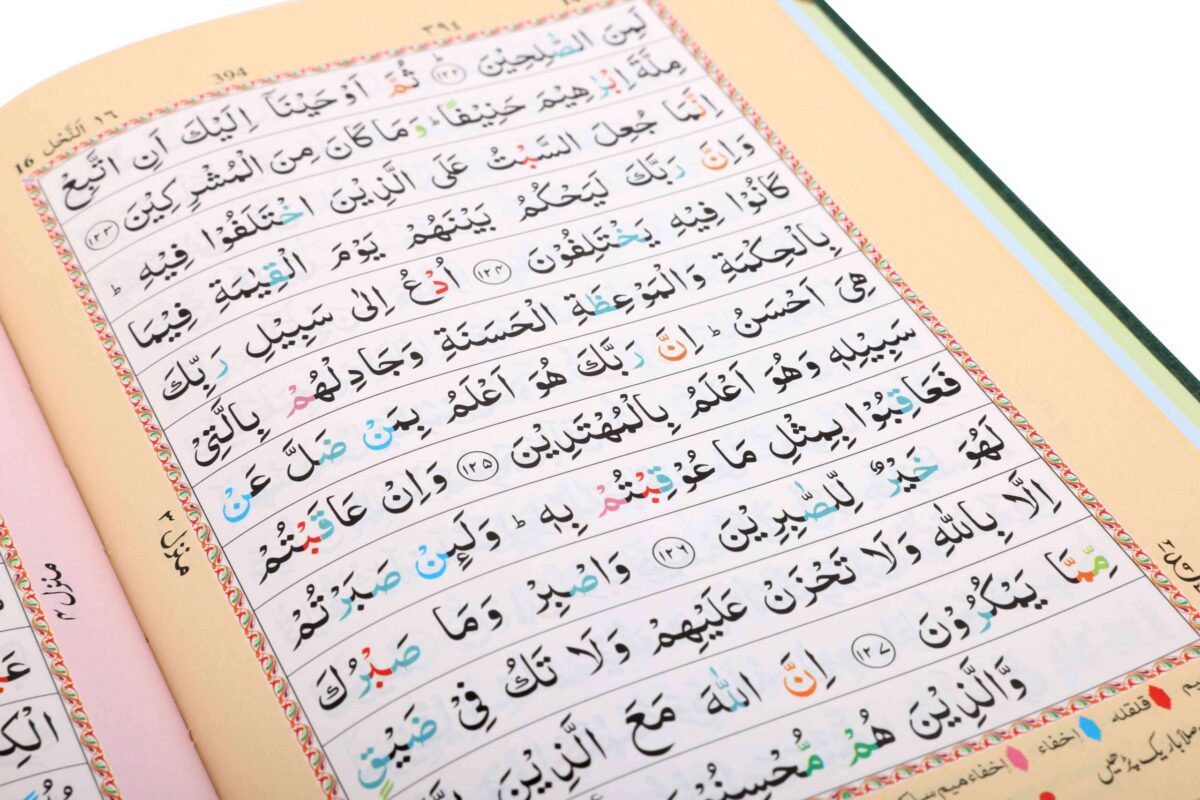 ٣٩٤
394
١٦ اَلنَّحْل
16
لَمِنَ الصّٰلِحِيْنَ ؕ ١٢٢ ثُمَّ اَوْحَيْنَاۤ اِلَيْكَ اَنِ اتَّبِعْ
مِلَّةَ اِبْرٰهِيْمَ حَنِيْفًا ؕ وَمَا كَانَ مِنَ الْمُشْرِكِيْنَ ١٢٣
اِنَّمَا جُعِلَ السَّبْتُ عَلَى الَّذِيْنَ اخْتَلَفُوْا فِيْهِ ؕ
وَاِنَّ رَبَّكَ لَيَحْكُمُ بَيْنَهُمْ يَوْمَ الْقِيٰمَةِ فِيْمَا
كَانُوْا فِيْهِ يَخْتَلِفُوْنَ ١٢٤ اُدْعُ اِلٰى سَبِيْلِ رَبِّكَ
بِالْحِكْمَةِ وَالْمَوْعِظَةِ الْحَسَنَةِ وَجَادِلْهُمْ بِالَّتِيْ
هِيَ اَحْسَنُ ؕ اِنَّ رَبَّكَ هُوَ اَعْلَمُ بِمَنْ ضَلَّ عَنْ
سَبِيْلِهٖ وَهُوَ اَعْلَمُ بِالْمُهْتَدِيْنَ ١٢٥ وَاِنْ عَاقَبْتُمْ
فَعَاقِبُوْا بِمِثْلِ مَا عُوْقِبْتُمْ بِهٖ ؕ وَلَئِنْ صَبَرْتُمْ
لَهُوَ خَيْرٌ لِّلصّٰبِرِيْنَ ١٢٦ وَاصْبِرْ وَمَا صَبْرُكَ
اِلَّا بِاللّٰهِ وَلَا تَحْزَنْ عَلَيْهِمْ وَلَا تَكُ فِيْ ضَيْقٍ
مِّمَّا يَمْكُرُوْنَ ١٢٧ اِنَّ اللّٰهَ مَعَ الَّذِيْنَ
وَّالَّذِيْنَ هُمْ مُّحْسِنُوْنَ
منزل ٣
منزل ٣
قلقله
اخفاء
اخفاء میم